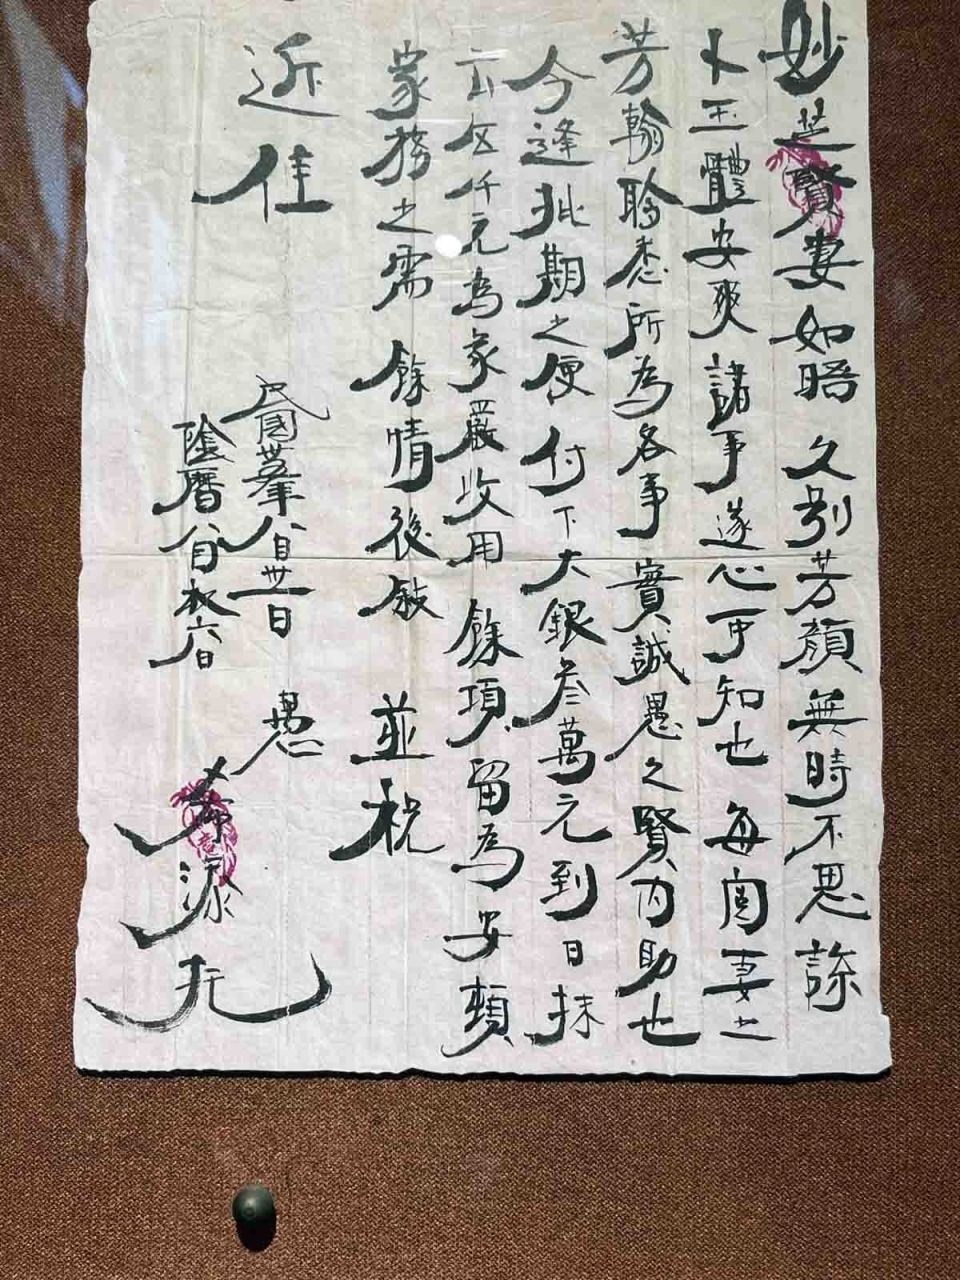 妙芝賢妻如晤 久別芳顏無時不思 諒
卜玉體安爽諸事遂心可知也 每閱妻之
芳翰聆悉所為各事實誠愚之賢內助也
今逢批期之便付下大銀叁萬元到日抹
出伍仟元為家嚴收用 餘項留為安頓
家務之需 餘情後敘 並祝
近佳
民國 年八月廿一日 愚
陰曆八月初六日
希源 托